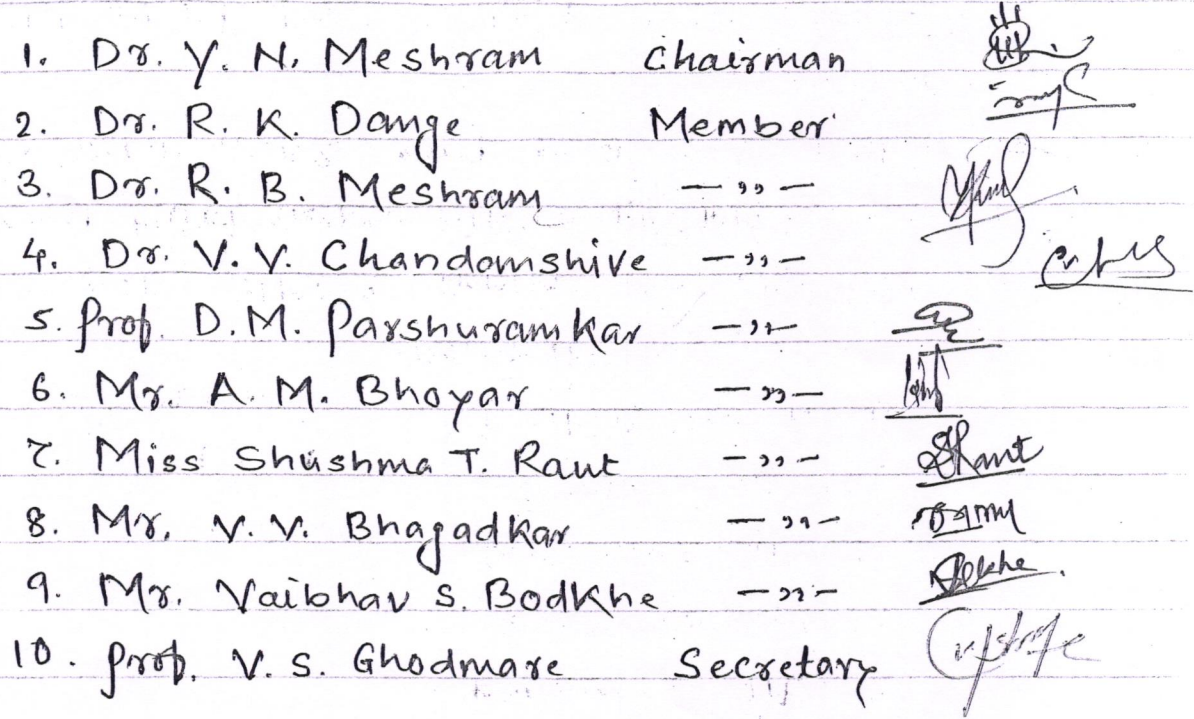 1. Dr. Y. N. Meshram Chairman
2. Dr. R. K. Dange Member
3. Dr. R. B. Meshram — ,, —
4. Dr. V. V. Chandamshive — ,, —
5. Prof. D. M. Parshuramkar — ,, —
6. Mr. A. M. Bhoyar — ,, —
7. Miss Shushma T. Raut — ,, —
8. Mr. V. V. Bhagadkar — ,, —
9. Mr. Vaibhav S. Bodkhe — ,, —
10. Prof. V. S. Ghodmare Secretary